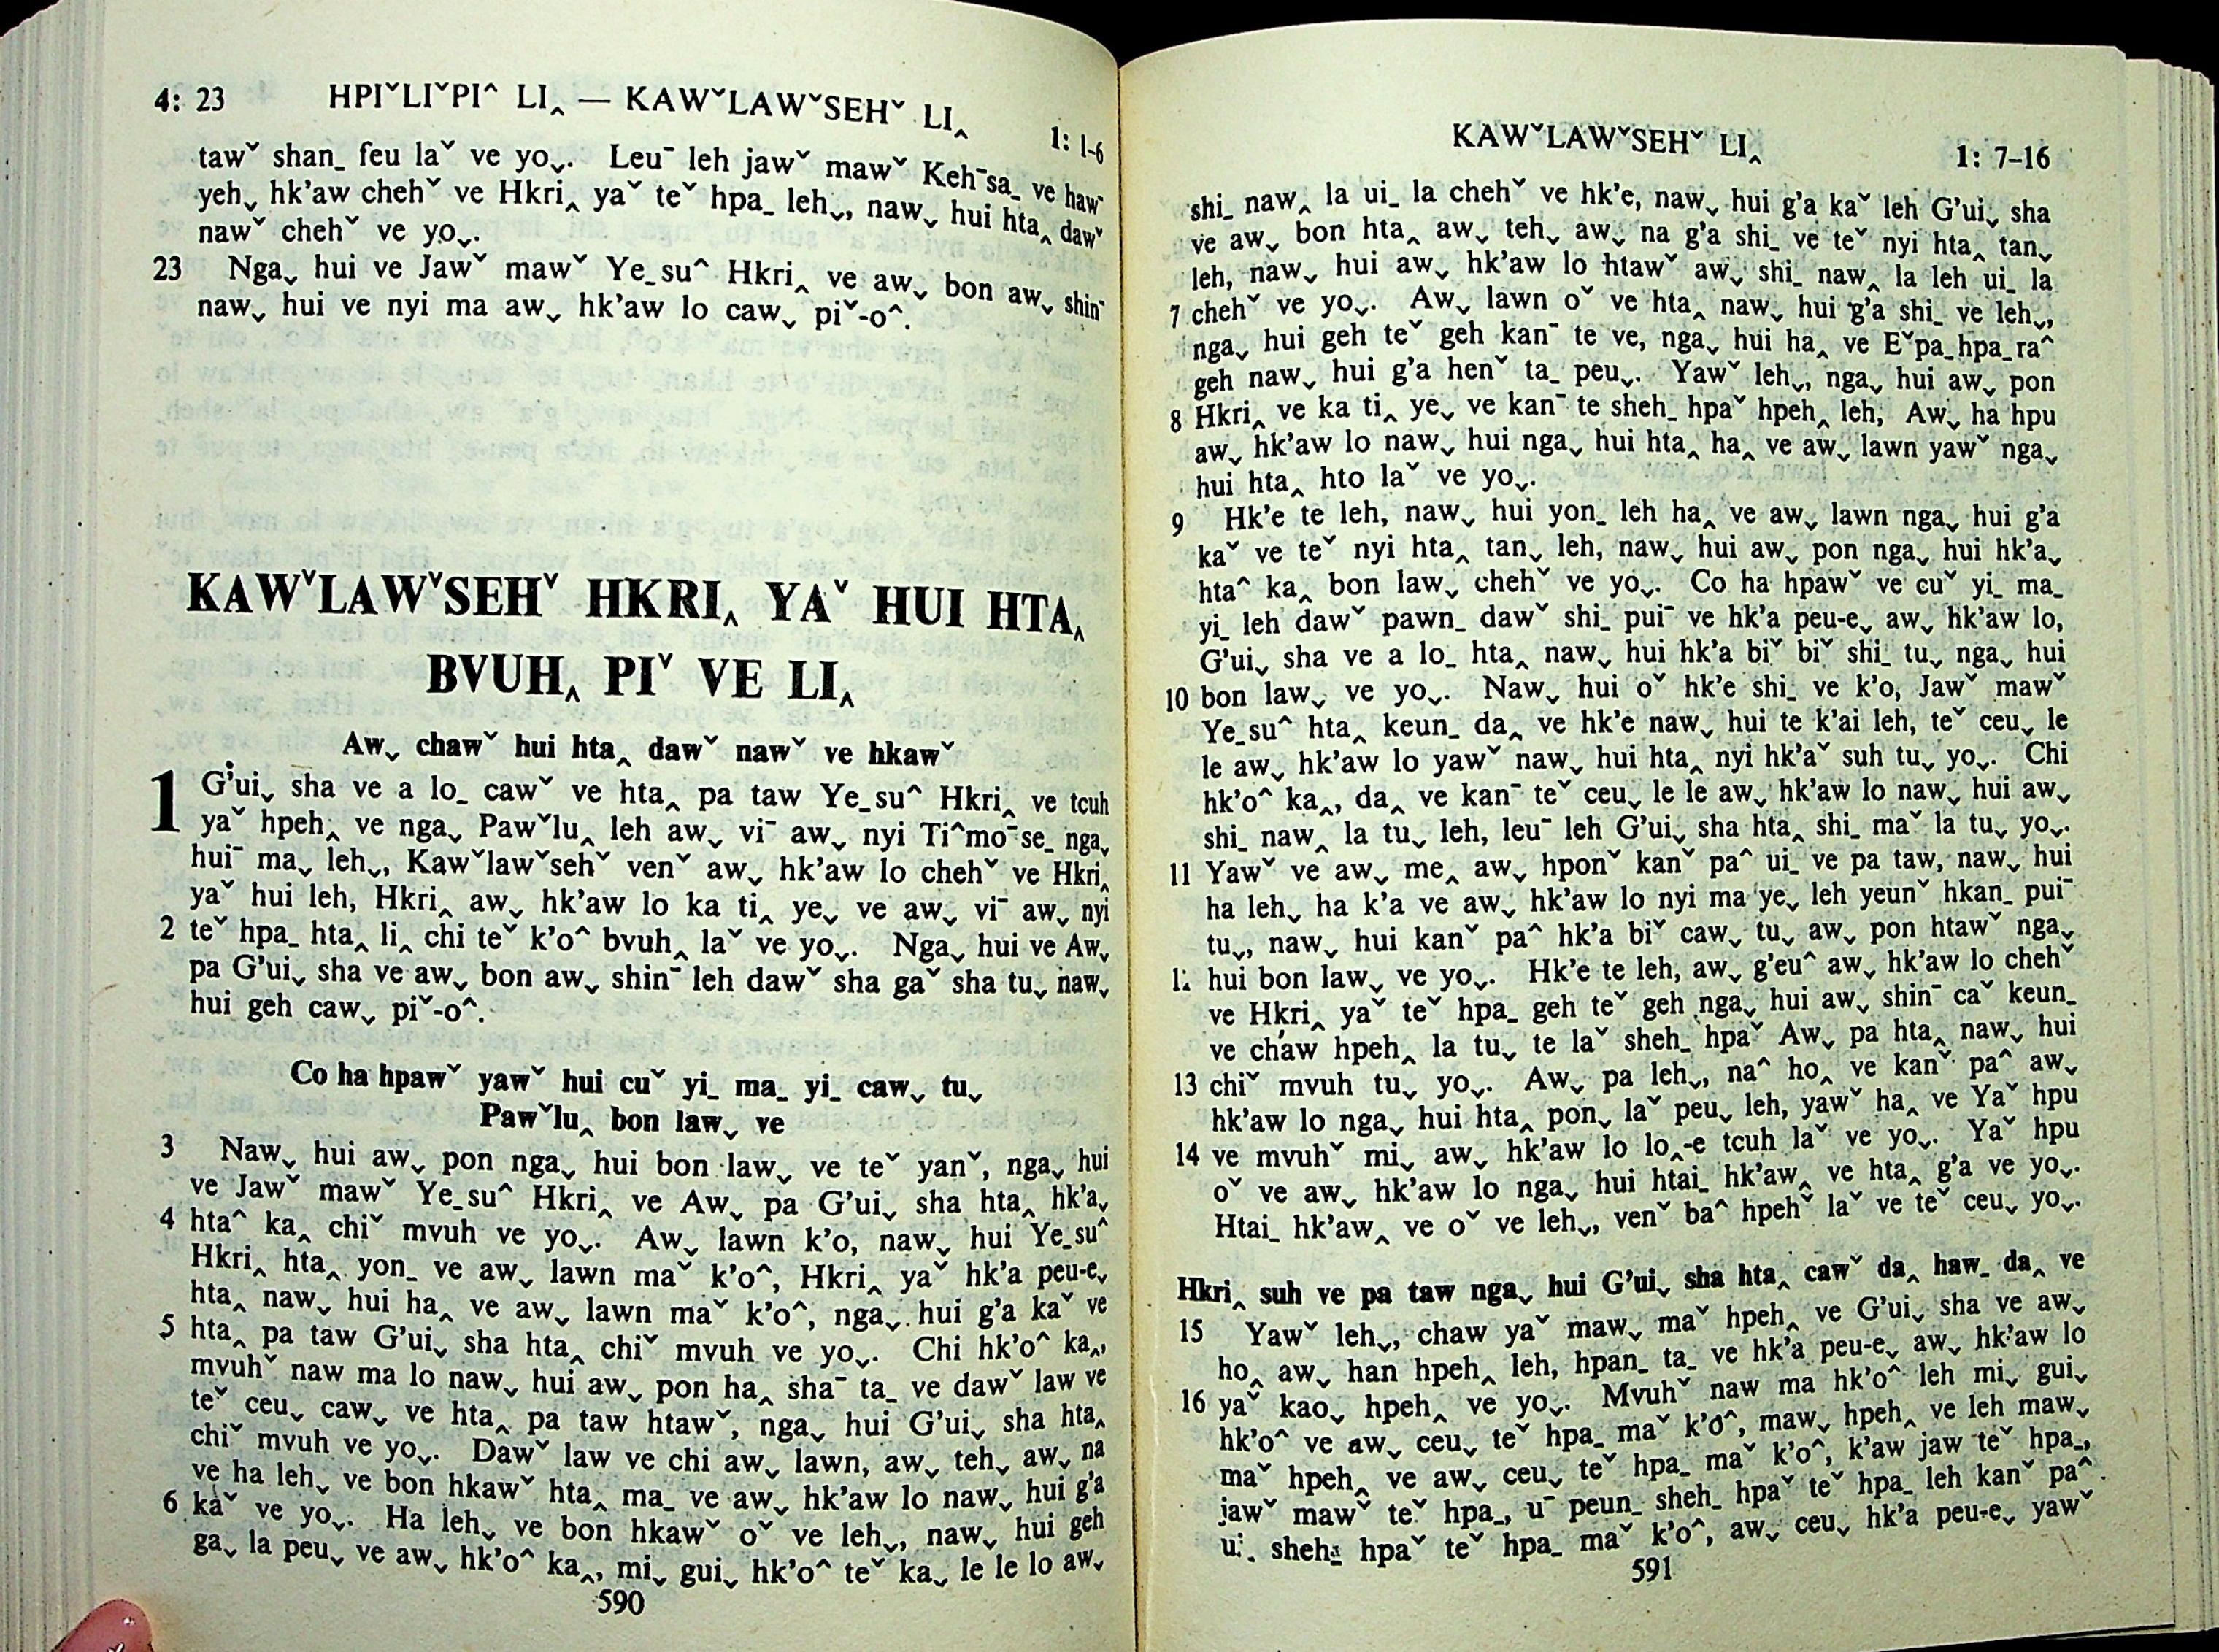 4: 23 HPIˇLIˇPI^ LI‸ — KAWˇLAWˇSEHˇ LI‸ 1: 1-6
tawˇ shan_ feu laˇ ve yoˬ. Leuˉ leh jawˇ mawˇ Kehˉsa_ ve hawˉ
yehˬ hk'aw chehˇ ve Hkri‸ yaˇ teˇ hpa_ lehˬ, nawˬ hui hta‸ dawˇ
nawˇ chehˇ ve yoˬ.
23 Ngaˬ hui ve Jawˇ mawˇ Ye_su^ Hkri‸ ve awˬ bon awˬ shinˉ
nawˬ hui ve nyi ma awˬ hk'aw lo cawˬ piˇ-o^.
KAWˇLAWˇSEHˇ HKRI‸ YAˇ HUI HTA‸
BVUH‸ PIˇ VE LI‸
Awˬ chawˇ hui hta‸ dawˇ nawˇ ve hkawˇ
1 G'uiˬ sha ve a lo_ cawˇ ve hta‸ pa taw Ye_su^ Hkri‸ ve tcuh
yaˇ hpeh‸ ve ngaˬ Pawˇlu‸ leh awˬ viˉ awˬ nyi Ti^moˉse_ ngaˬ
huiˉ maˬ lehˬ, Kawˇlawˇsehˇ venˇ awˬ hk'aw lo chehˇ ve Hkri‸
yaˇ hui leh, Hkri‸ awˬ hk'aw lo ka ti‸ yeˬ ve awˬ viˉ awˬ nyi
2 teˇ hpa_ hta‸ li‸ chi teˇ k'o^ bvuh‸ laˇ ve yoˬ. Ngaˬ hui ve Awˬ
pa G'uiˬ sha ve awˬ bon awˬ shinˉ leh dawˇ sha gaˇ sha tuˬ nawˬ
hui geh cawˬ piˇ-o^.
Co ha hpawˇ yawˇ hui cuˇ yi_ ma_ yi_ cawˬ tuˬ
Pawˇlu‸ bon lawˬ ve
3 Nawˬ hui awˬ pon ngaˬ hui bon lawˬ ve teˇ yanˇ, ngaˬ hui
ve Jawˇ mawˇ Ye_su^ Hkri‸ ve Awˬ pa G'uiˬ sha hta‸ hk'aˬ
4 hta^ ka‸ chiˇ mvuh ve yoˬ. Awˬ lawn k'o, nawˬ hui Ye_su^
Hkri‸ hta‸ yon_ ve awˬ lawn maˇ k'o^, Hkri‸ yaˇ hk'a peu-eˬ
hta‸ nawˬ hui ha‸ ve awˬ lawn maˇ k'o^, ngaˬ hui g'a kaˇ ve
5 hta‸ pa taw G'uiˬ sha hta‸ chiˇ mvuh ve yoˬ. Chi hk'o^ ka‸,
mvuhˇ naw ma lo nawˬ hui awˬ pon ha‸ shaˉ ta_ ve dawˇ law ve
teˇ ceuˬ cawˬ ve hta‸ pa taw htawˇ, ngaˬ hui G'uiˬ sha hta‸
chiˇ mvuh ve yoˬ. Dawˇ law ve chi awˬ lawn, awˬ tehˬ awˬ na
ve ha lehˬ ve bon hkawˇ hta‸ ma_ ve awˬ hk'aw lo nawˬ hui g'a
6 kaˇ ve yoˬ. Ha lehˬ ve bon hkawˇ oˇ ve lehˬ, nawˬ hui geh
gaˬ la peuˬ ve awˬ hk'o^ ka‸, miˬ guiˬ hk'o^ teˇ kaˬ le le lo awˬ
590
KAWˇLAWˇSEHˇ LI‸ 1: 7-16
shi_ naw‸ la ui_ la chehˇ ve hk'e, nawˬ hui g'a kaˇ leh G'uiˬ sha
ve awˬ bon hta‸ awˬ tehˬ awˬ na g'a shi_ ve teˇ nyi hta‸ tanˬ
leh, nawˬ hui awˬ hk'aw lo htawˇ awˬ shi_ naw‸ la leh ui_ la
7 chehˇ ve yoˬ. Awˬ lawn oˇ ve hta‸ nawˬ hui g'a shi_ ve lehˬ,
ngaˬ hui geh teˇ geh kanˉ te ve, ngaˬ hui ha‸ ve Eˇpa_hpa_ra^
geh nawˬ hui g'a henˇ ta_ peuˬ. Yawˇ lehˬ, ngaˬ hui awˬ pon
8 Hkri‸ ve ka ti‸ yeˬ ve kanˉ te sheh_ hpaˇ hpeh‸ leh, Awˬ ha hpu
awˬ hk'aw lo nawˬ hui ngaˬ hui hta‸ ha‸ ve awˬ lawn yawˇ ngaˬ
hui hta‸ hto laˇ ve yoˬ.
9 Hk'e te leh, nawˬ hui yon_ leh ha‸ ve awˬ lawn ngaˬ hui g'a
kaˇ ve teˇ nyi hta‸ tanˬ leh, nawˬ hui awˬ pon ngaˬ hui hk'aˬ
hta^ ka‸ bon lawˬ chehˇ ve yoˬ. Co ha hpawˇ ve cuˇ yi_ ma_
yi_ leh dawˇ pawn_ dawˇ shi_ puiˉ ve hk'a peu-eˬ awˬ hk'aw lo,
G'uiˬ sha ve a lo_ hta‸ nawˬ hui hk'a biˇ biˇ shi_ tuˬ ngaˬ hui
10 bon lawˬ ve yoˬ. Nawˬ hui oˇ hk'e shi_ ve k'o, Jawˇ mawˇ
Ye_su^ hta‸ keun_ da‸ ve hk'e nawˬ hui te k'ai leh, teˇ ceuˬ le
le awˬ hk'aw lo yawˇ nawˬ hui hta‸ nyi hk'aˇ suh tuˬ yoˬ. Chi
hk'o^ ka‸, da‸ ve kanˉ teˇ ceuˬ le le awˬ hk'aw lo nawˬ hui awˬ
shi_ naw‸ la tuˬ leh, leuˉ leh G'uiˬ sha hta‸ shi_ maˇ la tuˬ yoˬ.
11 Yawˇ ve awˬ me‸ awˬ hponˇ kanˇ pa^ ui_ ve pa taw, nawˬ hui
ha lehˬ ha k'a ve awˬ hk'aw lo nyi ma yeˬ leh yeunˇ hkan_ puiˉ
tuˬ, nawˬ hui kanˇ pa^ hk'a biˇ cawˬ tuˬ awˬ pon htawˇ ngaˬ
hui bon lawˬ ve yoˬ. Hk'e te leh, awˬ g'eu^ awˬ hk'aw lo chehˇ
ve Hkri‸ yaˇ teˇ hpa_ geh teˇ geh ngaˬ hui awˬ shinˉ caˇ keun_
ve chaw hpeh‸ la tuˬ te laˇ sheh_ hpaˇ Awˬ pa hta‸ nawˬ hui
13 chiˇ mvuh tuˬ yoˬ. Awˬ pa lehˬ, na^ ho‸ ve kanˇ pa^ awˬ
hk'aw lo ngaˬ hui hta‸ ponˬ laˇ peuˬ leh, yawˇ ha‸ ve Yaˇ hpu
14 ve mvuhˇ miˬ awˬ hk'aw lo lo‸-e tcuh laˇ ve yoˬ. Yaˇ hpu
oˇ ve awˬ hk'aw lo ngaˬ hui htai_ hk'aw‸ ve hta‸ g'a ve yoˬ.
Htai_ hk'aw‸ ve oˇ ve lehˬ, venˇ ba^ hpehˇ laˇ ve teˇ ceuˬ yoˬ.
Hkri‸ suh ve pa taw ngaˬ hui G'uiˬ sha hta‸ cawˇ da‸ haw_ da‸ ve
15 Yawˇ lehˬ, chaw yaˇ mawˬ maˇ hpeh‸ ve G'uiˬ sha ve awˬ
ho‸ awˬ han hpeh‸ leh, hpan_ ta_ ve hk'a peu-eˬ awˬ hk'aw lo
16 yaˇ kaoˬ hpeh‸ ve yoˬ. Mvuhˇ naw ma hk'o^ leh miˬ guiˬ
hk'o^ ve awˬ ceuˬ teˇ hpa_ maˇ k'o^, mawˬ hpeh‸ ve leh mawˬ
maˇ hpeh‸ ve awˬ ceuˬ teˇ hpa_ maˇ k'o^, k'aw jaw teˇ hpa_,
jawˇ mawˇ teˇ hpa_, uˉ peun_ sheh_ hpaˇ teˇ hpa_ leh kanˇ pa^
hpaˇ teˇ hpa_ maˇ k'o^, awˬ ceuˬ hk'a peu-eˬ yawˇ
591